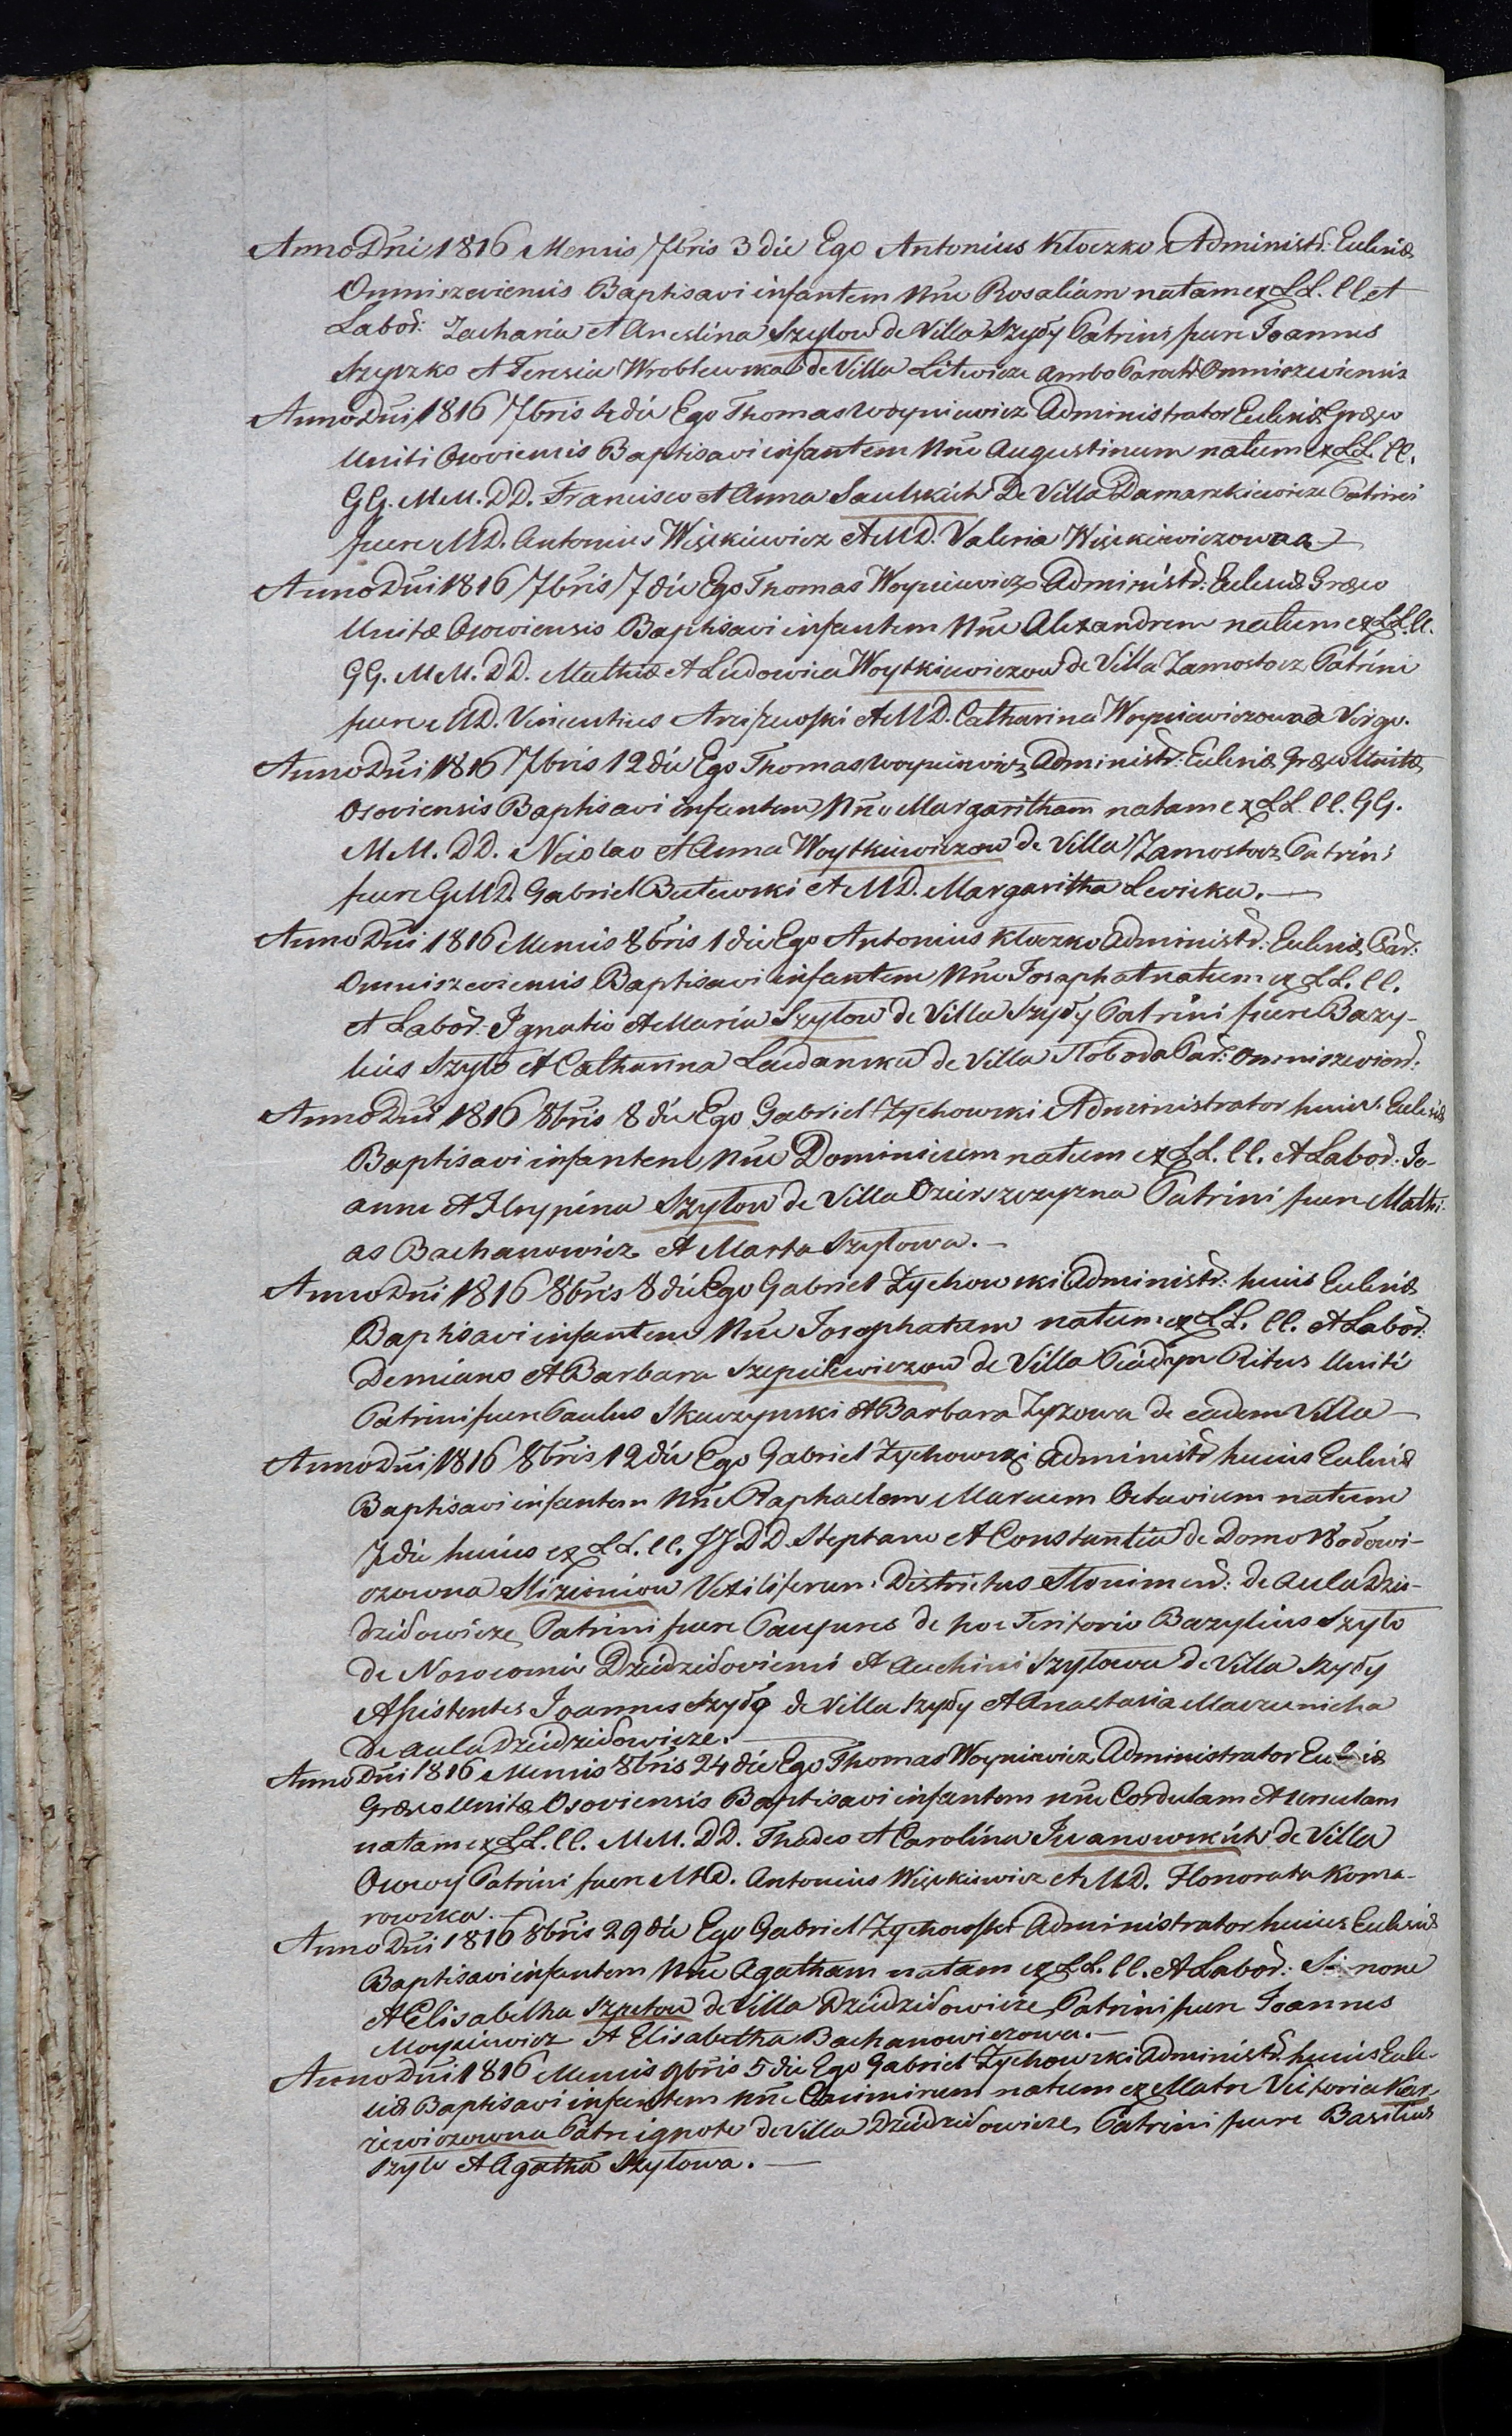 Anno Dni 1816 Mensis 7bris 3 die Ego Antonius Kłoczko Administr: Eclesiæ
Omniszeviensis Baptisavi infantem Nne Rosaliam natam ex LL. ll et
Labor: Zacharia et Anestina Szyłow de Villa Szyły Patrini fuere Joannes
Szyszko et Teresia Wroblewska de Villa Litewicze ambo Paraf: Omniszewiensis
Anno Dni 1816 7bris 4 die Ego Thomas Woyniewicz Administrator Eclesiæ Græco
Uniti Osoviensis Baptisavi infantem Nne Augustinum natum ex LL. ll.
GG. MM. DD. Francisco et Anna Saulskich De Villa Damaszkiewicze Patrini
fuere MD. Antonius Więckiewicz et MD. Valeria Więckiewiczowna
Anno Dni 1816 7bris 7 die Ego Thomas Woyniewicz Administr: Eclesiæ Græco
Unitæ Osowiensis Baptisavi infantem Nne Alexandrum natum ex LL. ll.
GG. MM. DD. Mathia et Ludowica Woytkiewiczow de Villa Zamostocz Patrini
fuere MD. Vincentius Arciszewski et MD. Catharina Woyniewiczowna Virgo.
Anno Dni 1816 7bris 12 die Ego Thomas Woyniewicz Administr: Eclesiæ Græco Unitæ
Osoviensis Baptisavi infantem Nne Margaritham natam ex LL. ll. GG.
MM. DD. Nicolao et Anna Woytkiewiczow de Villa Zamostocz Patrini
fuere GMD. Gabriel Butewski et MD. Margaritha Levicka.
Anno Dni 1816 Mensis 8bris 1 die Ego Antonius Kłoczko Administr: Eclesiæ Par:
Omniszeviensis Baptisavi infantem Nne Josaphat natum ex LL. ll.
et Labor: Ignatio et Maria Szyłow de Villa Szyły Patrini fuere Bazy-
lius Szyło et Catharina Laudanska de Villa Słoboda Par: Omniszeviens:
Anno Dni 1816 8bris 8 die Ego Gabriel Zychowski Administrator huius Eclesiæ
Baptisavi infantem Nne Dominicum natum ex LL. ll. et Labor: Jo-
anne et Ahrypina Szyłow de Villa Ozierszczyzna Patrini fuere Mathi-
as Bachanowicz et Marta Szyłowa.
Anno Dni 1816 8bris 8 die Ego Gabriel Zychowski Administr: huius Eclesiæ
Baptisavi infantem Nne Josephatum natum ex LL. ll. et Labor:
Demiano et Barbara Szepielewiczow de Villa Piadyn Ritus Uniti
Patrini fuere Paulus Skurzynski et Barbara Zyzowa de eadem Villa
Anno Dni 1816 8bris 12 die Ego Gabriel Zychowski Administr huius Eclesiæ
Baptisavi infantem Nne Raphaelem Marcum Octavium natum
7 die huius ex LL. ll. JJ DD. Stephano et Constantia de Domo Wołowi-
czowna Mizieniow Vexiliferum Districtus Słonimens: de Aula Dzie-
dziłowicze Patrini fuere Paupures de hoc Teritorio Bazylius Szyło
de Nosocomio Dziedziłoviensi et Auchini Szyłowa de Villa Szyły
Asistentes Joannes Szyło de Villa Szyły et Anastasia Maczunicha
De Aula Dziedziłowicze.
Anno Dni 1816 Mensis 8bris 24 die Ego Thomas Woyniewicz Administrator Eclesiæ
Græco Unitæ Osoviensis Baptisavi infantem nne Cordulam et Ursulam
natam ex LL. ll. MM. DD. Thadeo et Carolina Iwanowskich de Villa
Osowy Patrini fuere MD. Antonius Więckiewicz et MD. Honorata Koma-
rowska.
Anno Dni 1816 8bris 29 die Ego Gabriel Zychowski Administrator huius Eclesiæ
Baptisavi infantem Nne Agatham natam ex LL. ll. et Labor: Simone
et Elisabetha Szpetow de Villa Dziedziłowicze Patrini fuere Joannes
Moysiewicz et Elisabetha Bachanowiczowa.
Anno Dni 1816 Mensis 9bris 5 die Ego Gabriel Zychowski Administr: huius Ecle-
siæ Baptisavi infantem nne Casimirum natum ex Matre Victoria Kar-
iewiczowna Patre ignoto de Villa Dziedziłowicze Patrini fuere Basilius
Szyło et Agatha Szyłowa.